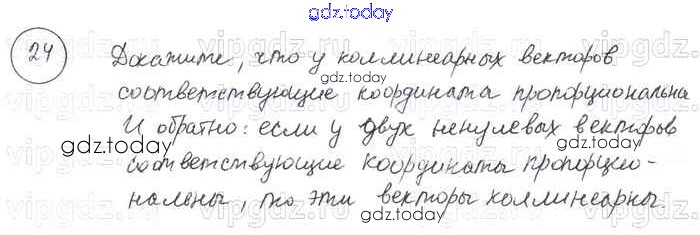 gdz.today
24 Докажите, что у коллинеарных векторов
gdz.today
соответствующие координата пропорциональна
И обратно: если у двух ненулевых векторов
gdz.today
gdz.today
соответствующие координаты пропорцио-
нальны, то эти векторы коллинеарны.
gdz.today